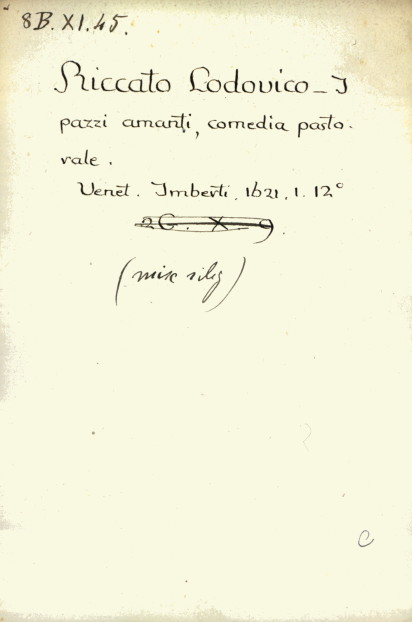 8B.XI.45.
Riccato Lodovico - I
pazzi amanti, comedia pasto-
rale.
Venet. Imberti. 1621. 1. 12°
2G. X. 9.
(misc
C